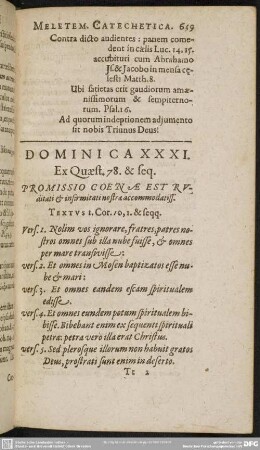 MELETEM. CATECHETICA. 659
Contra dicto audientes: panem come-
dent in cælis Luc. 14. 15.
accubituri cum Abrahamo
Js. & Jacobo in mensa cę-
lesti Matth. 8.
Ubi satietas erit gaudiorum amæ-
nissimorum & sempiterno-
rum. Psal. 16.
Ad quorum indeptionem adjumento
sit nobis Triunus Deus!
DOMINICA XXXI.
Ex Quæst. 78. & seq.
PROMISSIO COENÆ EST RV-
ditati & infirmitati nostræ accommodatiss.
TEXTVS I. Cor. 10, 1. & seqq.
Vers. 1. Nolim vos ignorare, fratres, patres no-
stros omnes sub illa nube fuisse, & omnes
per mare transivisse:
vers. 2. Et omnes in Mosen baptizatos esse nu-
be & mari:
vers. 3. Et omnes eandem escam spiritualem
edisse.
vers. 4. Et omnes eundem potum spiritualem bi-
bisse. Bibebant enim ex sequenti spirituali
petra: petra vero illa erat Christus.
vers. 5. Sed plerosque illorum non habuit gratos
Deus, prostrati sunt enim in deserto.
Tt 2
DFG